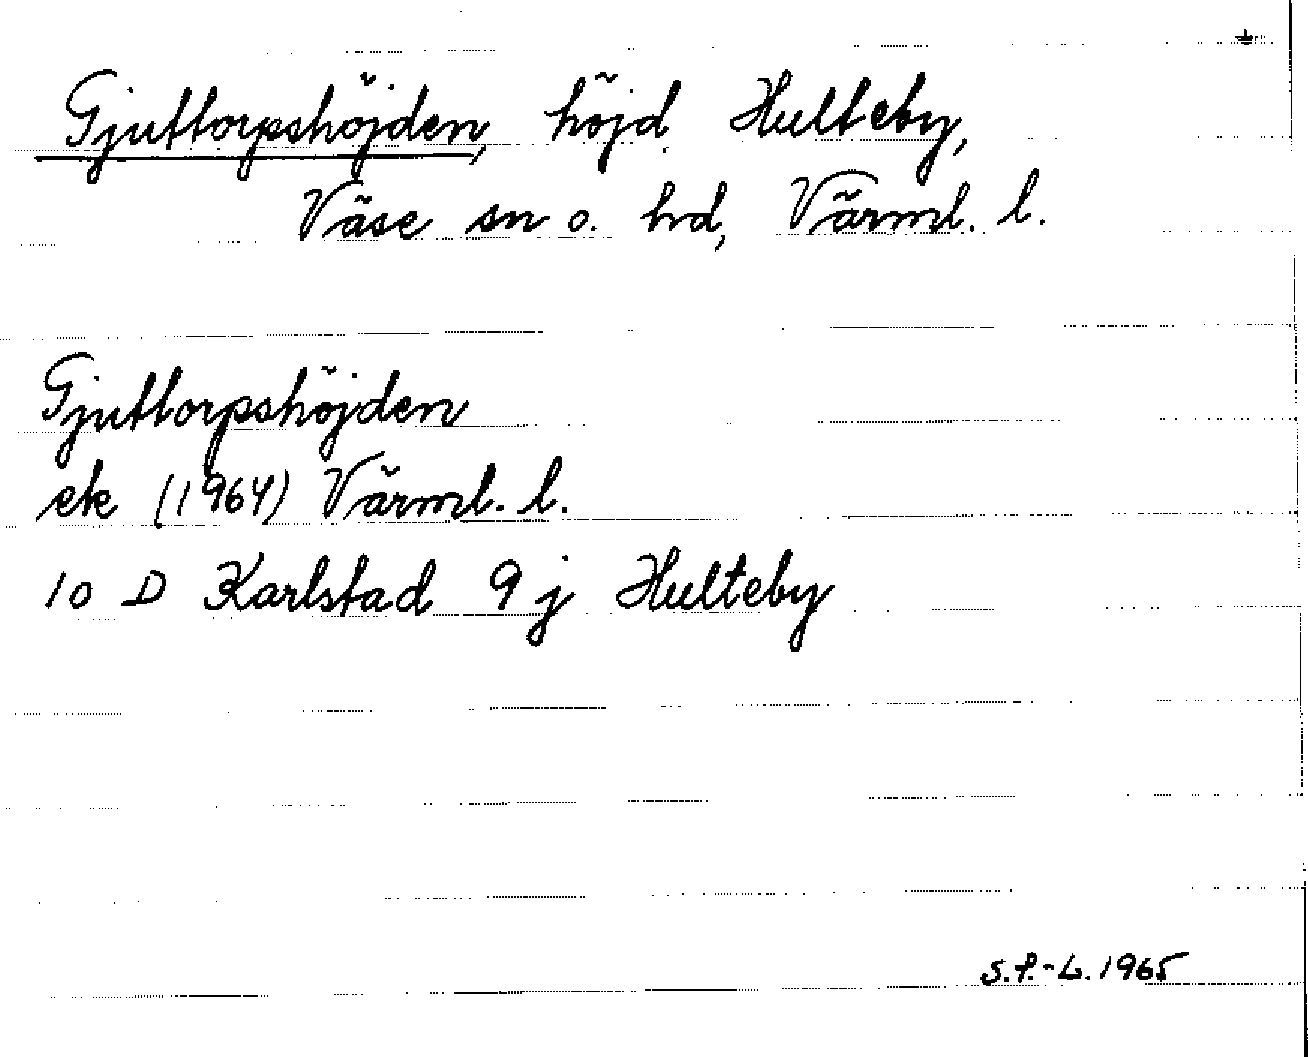 Gjuttorpshöjden, höjd. Hulteby,
Väse sn o. hd, Värml. l.
Gjuttorpshöjden
ek (1964) Värml. l.
10 D Karlstad 9 j Hulteby
S.P.-L. 1965